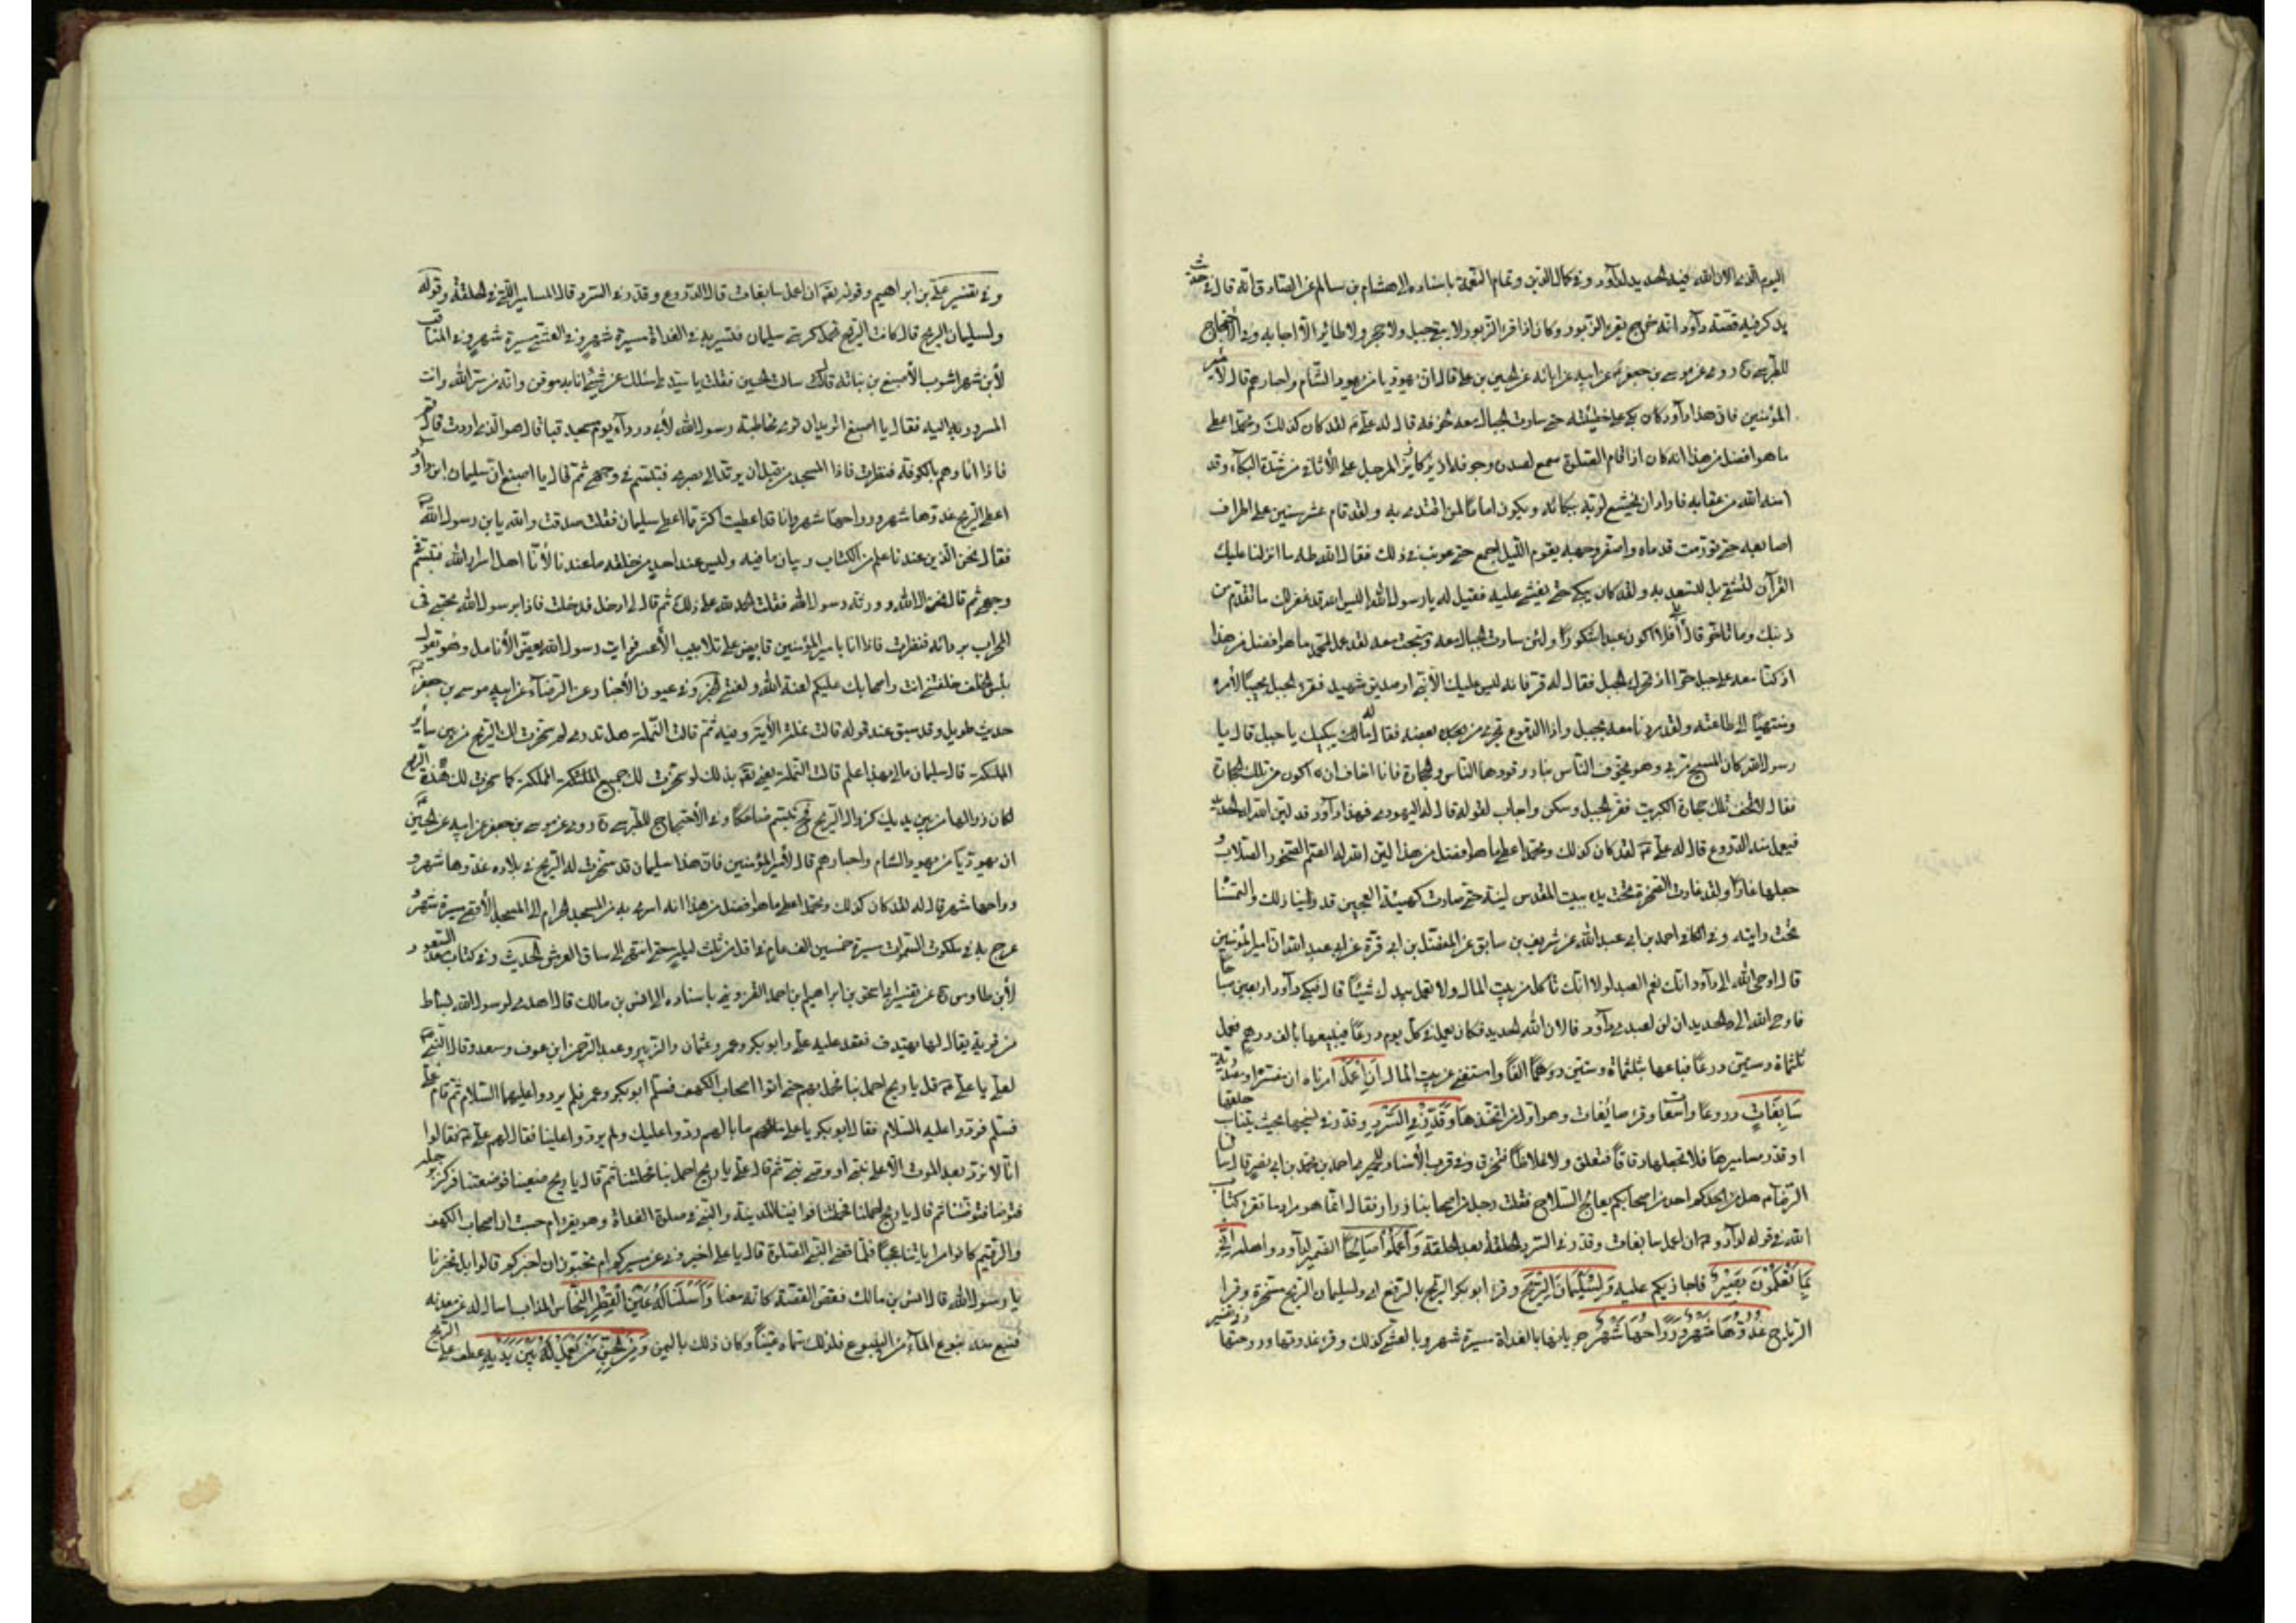 اليوم الذى الان الله فيه الحديد لداود وفى كمال الدين وتمام النعمة باسناده الى هشام بن سالم عن الصادق انه قال فى حديث
يذكر فيه قصة داود انه خرج يقرء الزبور وكان اذا قرء الزبور لا يبقى جبل ولا حجر ولا طائر الا اجابه وفى الاحتجاج
للطبرسى روى عن موسى بن جعفر عن ابيه عن ابائه عن الحسين بن على قال ان يهوديا من يهود الشام واحبارهم قال لامير
المؤمنين فان هذا داود كان بكى على خطيئته حتى سارت الجبال معه لخوفه قال له على لقد كان كذلك ومحمد اعطى
ما هو افضل من هذا انه كان اذا قام الى الصلوة سمع لصدره وجوفه ازيز كازيز المرجل على الاثافى من شدة البكاء وقد
امنه الله من عقابه فاراد ان يتخشع لربه ببكائه ويكون اماما لمن اقتدى به ولقد قام عشر سنين على اطراف
اصابعه حتى تورمت قدماه واصفر وجهه يقوم الليل اجمع حتى عوتب فى ذلك فقال الله طه ما انزلنا عليك
القرآن لتشقى بل لتسعد به ولقد كان يبكى حتى يغشى عليه فقيل له يا رسول الله اليس الله قد غفر لك ما تقدم من
ذنبك وما تاخر قال بلى أفلا اكون عبدا شكورا ولئن سارت الجبال معه وسبحت معه لقد عمل لمحمد ما هو افضل من هذا
اذ كنا معه على جبل حراء اذ تحرك الجبل فقال له قر فانه ليس عليك الا نبى او صديق شهيد فقر الجبل مجيبا لامره
ومنتهيا الى طاعته ولقد مررنا معه بجبل واذا الدموع تجرى من بعضه فقال له ما يبكيك يا جبل قال يا
رسول الله كان المسيح مر بى وهو يخوف الناس بنار وقودها الناس والحجارة فانا اخاف ان اكون من تلك الحجارة
فقال لا تخف تلك حجارة الكبريت فقر الجبل وسكن واجاب لقوله قال له اليهودى فهذا داود قد لين الله له الحديد
فيعمل منه الدروع قال له على لقد كان كذلك ومحمد اعطى ما هو افضل من هذا لين الله له الصم الصخور الصلاب و
جعلها غارا ولقد غارت الصخرة تحت يده ببيت المقدس لينة حتى صارت كهيئة العجين قد راينا ذلك والتمسنا
تحت رايته وفى الكافى احمد بن ابى عبد الله عن شريف بن سابق عن المفضل بن ابى قرة عن ابى عبد الله ان امير المؤمنين
قال اوحى الله الى داود انك نعم العبد لولا انك تاكل من بيت المال ولا تعمل بيدك شيئا قال فبكى داود اربعين صباحا
فاوحى الله الى الحديد ان لن لعبدى داود فالان الله الحديد فكان يعمل فى كل يوم درعا فيبيعها بالف درهم فعمل
ثلثماة وستين درعا فباعها بثلثماة وستين الفا واستغنى عن بيت المال أَنِ اعْمَلْ امرناه ان
سَابِغَاتٍ دروعا واسعات وقرء صابغات وهو اول من اتخذها وَقَدِّرْ فِي السَّرْدِ وقدر فى نسجها بحيث يتناسب حلقها
او قدر مساميرها فلا تجعلها دقاقا فتقلق ولا غلاظا فتخرق وفى قرب الاسناد للحميرى احمد بن محمد بن ابى نصر قال سالت
الرضا هل من احد من اصحابكم يعالج السلاح فقلت رجل من اصحابنا زراد فقال انما هو سراد اما تقرء كتاب
الله فى قوله لداود ان اعمل سابغات وقدر فى السرد الحلقة بعد الحلقة وَاعْمَلُوا صَالِحًا الضمير لداود واهله إِنِّي
بِمَا تَعْمَلُونَ بَصِيرٌ فاجازيكم عليه وَلِسُلَيْمَانَ الرِّيحَ وقرء ابو بكر الريح بالرفع اى ولسليمان الريح مسخرة وقرا
الرياح غُدُوُّهَا شَهْرٌ وَرَوَاحُهَا شَهْرٌ جريانها بالغداة مسيرة شهر وبالعشى كذلك وقرء غدوتها وروحتها
وفى تفسير على بن ابراهيم وقوله تعالى ان اعمل سابغات قال الدروع وقدر فى السرد قال المسامير التى فى الحلقة وقوله
ولسليمان الريح قال كانت الريح تحمل كرسى سليمان فتسير به فى الغداة مسيرة شهر وفى العشى مسيرة شهر وفى المناقب
لابن شهراشوب الاصبغ بن نباته قال سالت الحسين فقلت يا سيدى اسئلك عن شىء انا به موقن وانه من سر الله وانت
المسرور اليه فقال يا اصبغ اتريد ان ترى مخاطبة رسول الله لابى دون يوم مسجد قبا قال هو الذى اردت قال قم
فاذا انا وهو بالكوفة فنظرت فاذا المسجد من قبل ان يرتد الى بصرى فتبسم فى وجهى ثم قال يا اصبغ ان سليمان ابن داود
اعطى الريح غدوها شهر ورواحها شهر وانا قد اعطيت اكثر مما اعطى سليمان فقلت صدقت والله يا بن رسول الله
فقال نحن الذين عندنا علم الكتاب وبيان ما فيه وليس عند احد من خلقه ما عندنا لانا اهل سر الله فتبسم فى
وجهى ثم قال نحن ال الله وورثة رسول الله فقلت الحمد لله على ذلك ثم قال لى ادخل فدخلت فاذا برسول الله محتبى فى
المحراب بردائه فنظرت فاذا انا بامير المؤمنين قابض على تلابيب الاعسر فرايت رسول الله يعض الانامل وهو يقول
بئس الخلف خلفتنى انت واصحابك عليكم لعنة الله ولعنتى الخبر وفى عيون الاخبار عن الرضا عن ابيه موسى بن جعفر
حديث طويل وقد سبق عند قوله قالت نملة الاية وفيه ثم قالت النملة هل تدرى لم سخرت لك الريح من بين سائر
المملكة قال سليمان ما لى بهذا علم قالت النملة يعنى بذلك لو سخرت لك جميع المملكة كما سخرت لك هذه الريح
لكان زوالها من بين يديك كزوال الريح فتبسم ضاحكا وفى الاحتجاج للطبرسى روى عن موسى بن جعفر عن ابيه عن الحسين
ان يهوديا من يهود الشام واحبارهم قال لامير المؤمنين فان هذا سليمان قد سخرت له الريح فى بلاده غدوها شهر و
رواحها شهر قال له لقد كان كذلك ومحمد اعطى ما هو افضل من هذا انه اسرى به من المسجد الحرام الى المسجد الاقصى مسيرة شهر و
عرج به فى ملكوت السموات مسيرة خمسين الف عام فى اقل من ثلث ليلة حتى انتهى الى ساق العرش الحديث وفى كتاب سعد السعود
لابن طاوس عن تفسير ابى اسحق بن ابراهيم بن احمد القزوينى باسناده الى انس بن مالك قال اهدى لرسول الله بساط
من قرية يقال لها بهندف فقعد عليه على وابو بكر وعمر وعثمان والزبير وعبد الرحمن ابن عوف وسعد وقال النبى
لعلى يا على قل يا ريح احملينا فحملتهم حتى اتوا اصحاب الكهف فسلم ابو بكر وعمر فلم يردوا عليهما السلام ثم قام على
فسلم فردوا عليه السلام فقال ابو بكر يا على ما بالهم ردوا عليك ولم يردوا علينا فقال لهم على فقالوا
انا لا نرد بعد الموت الا على نبى او وصى نبى ثم قال على يا ريح احملينا فحملتنا ثم قال يا ريح ضعينا فوضعتنا فركز برجله
فتوضا فتوضانا ثم قال يا ريح احملينا فحملتنا فوافينا المدينة والنبى فى صلوة الغداة وهو يقرء ام حسبت ان اصحاب الكهف
والرقيم كانوا من اياتنا عجبا فلما قضى النبى الصلوة قال يا على اخبرونى عن مسيركم ام تحبون ان اخبركم قالوا بل تخبرنا
يا رسول الله قال انس بن مالك فقص القصة كانه معنا وَأَسَلْنَا لَهُ عَيْنَ الْقِطْرِ النحاس المذاب اسال له من معدنه
فنبع منه نبوع الماء من الينبوع فلذلك سماه عينا وكان ذلك باليمن وَمِنَ الْجِنِّ مَنْ يَعْمَلُ بَيْنَ يَدَيْهِ عطف على الريح